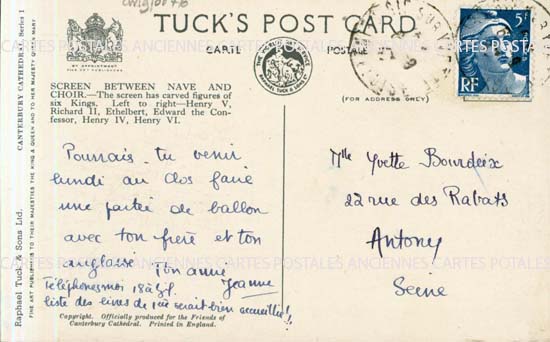 cwig100476
TUCK'S POST CARD
CARTE POSTALE
BY APPOINTMENT
(FOR ADDRESS ONLY)
SCREEN BETWEEN NAVE AND
CHOIR.—The screen has carved figures of
six Kings. Left to right—Henry V,
Richard II, Ethelbert, Edward the Con-
fessor, Henry IV, Henry VI.
Pourrais-tu venir
lundi au clos faire
une partie de ballon
avec ton frère et ton
anglaise Ton amie
Jeanne
Téléphonesmoi 18 à
liste des livres de 1ère serait bien accueillie!!
Copyright. Officially produced for the Friends of
Canterbury Cathedral. Printed in England.
Raphael Tuck & Sons Ltd.
CANTERBURY CATHEDRAL, Series 1
FINE ART PUBLISHERS TO THEIR MAJESTIES THE KING & QUEEN AND TO HER MAJESTY QUEEN MARY
5F
RF
Mlle Yvette Bourdeix
22 rue des Rabats
Antony
Seine
ANCIENNES CARTES POSTALES